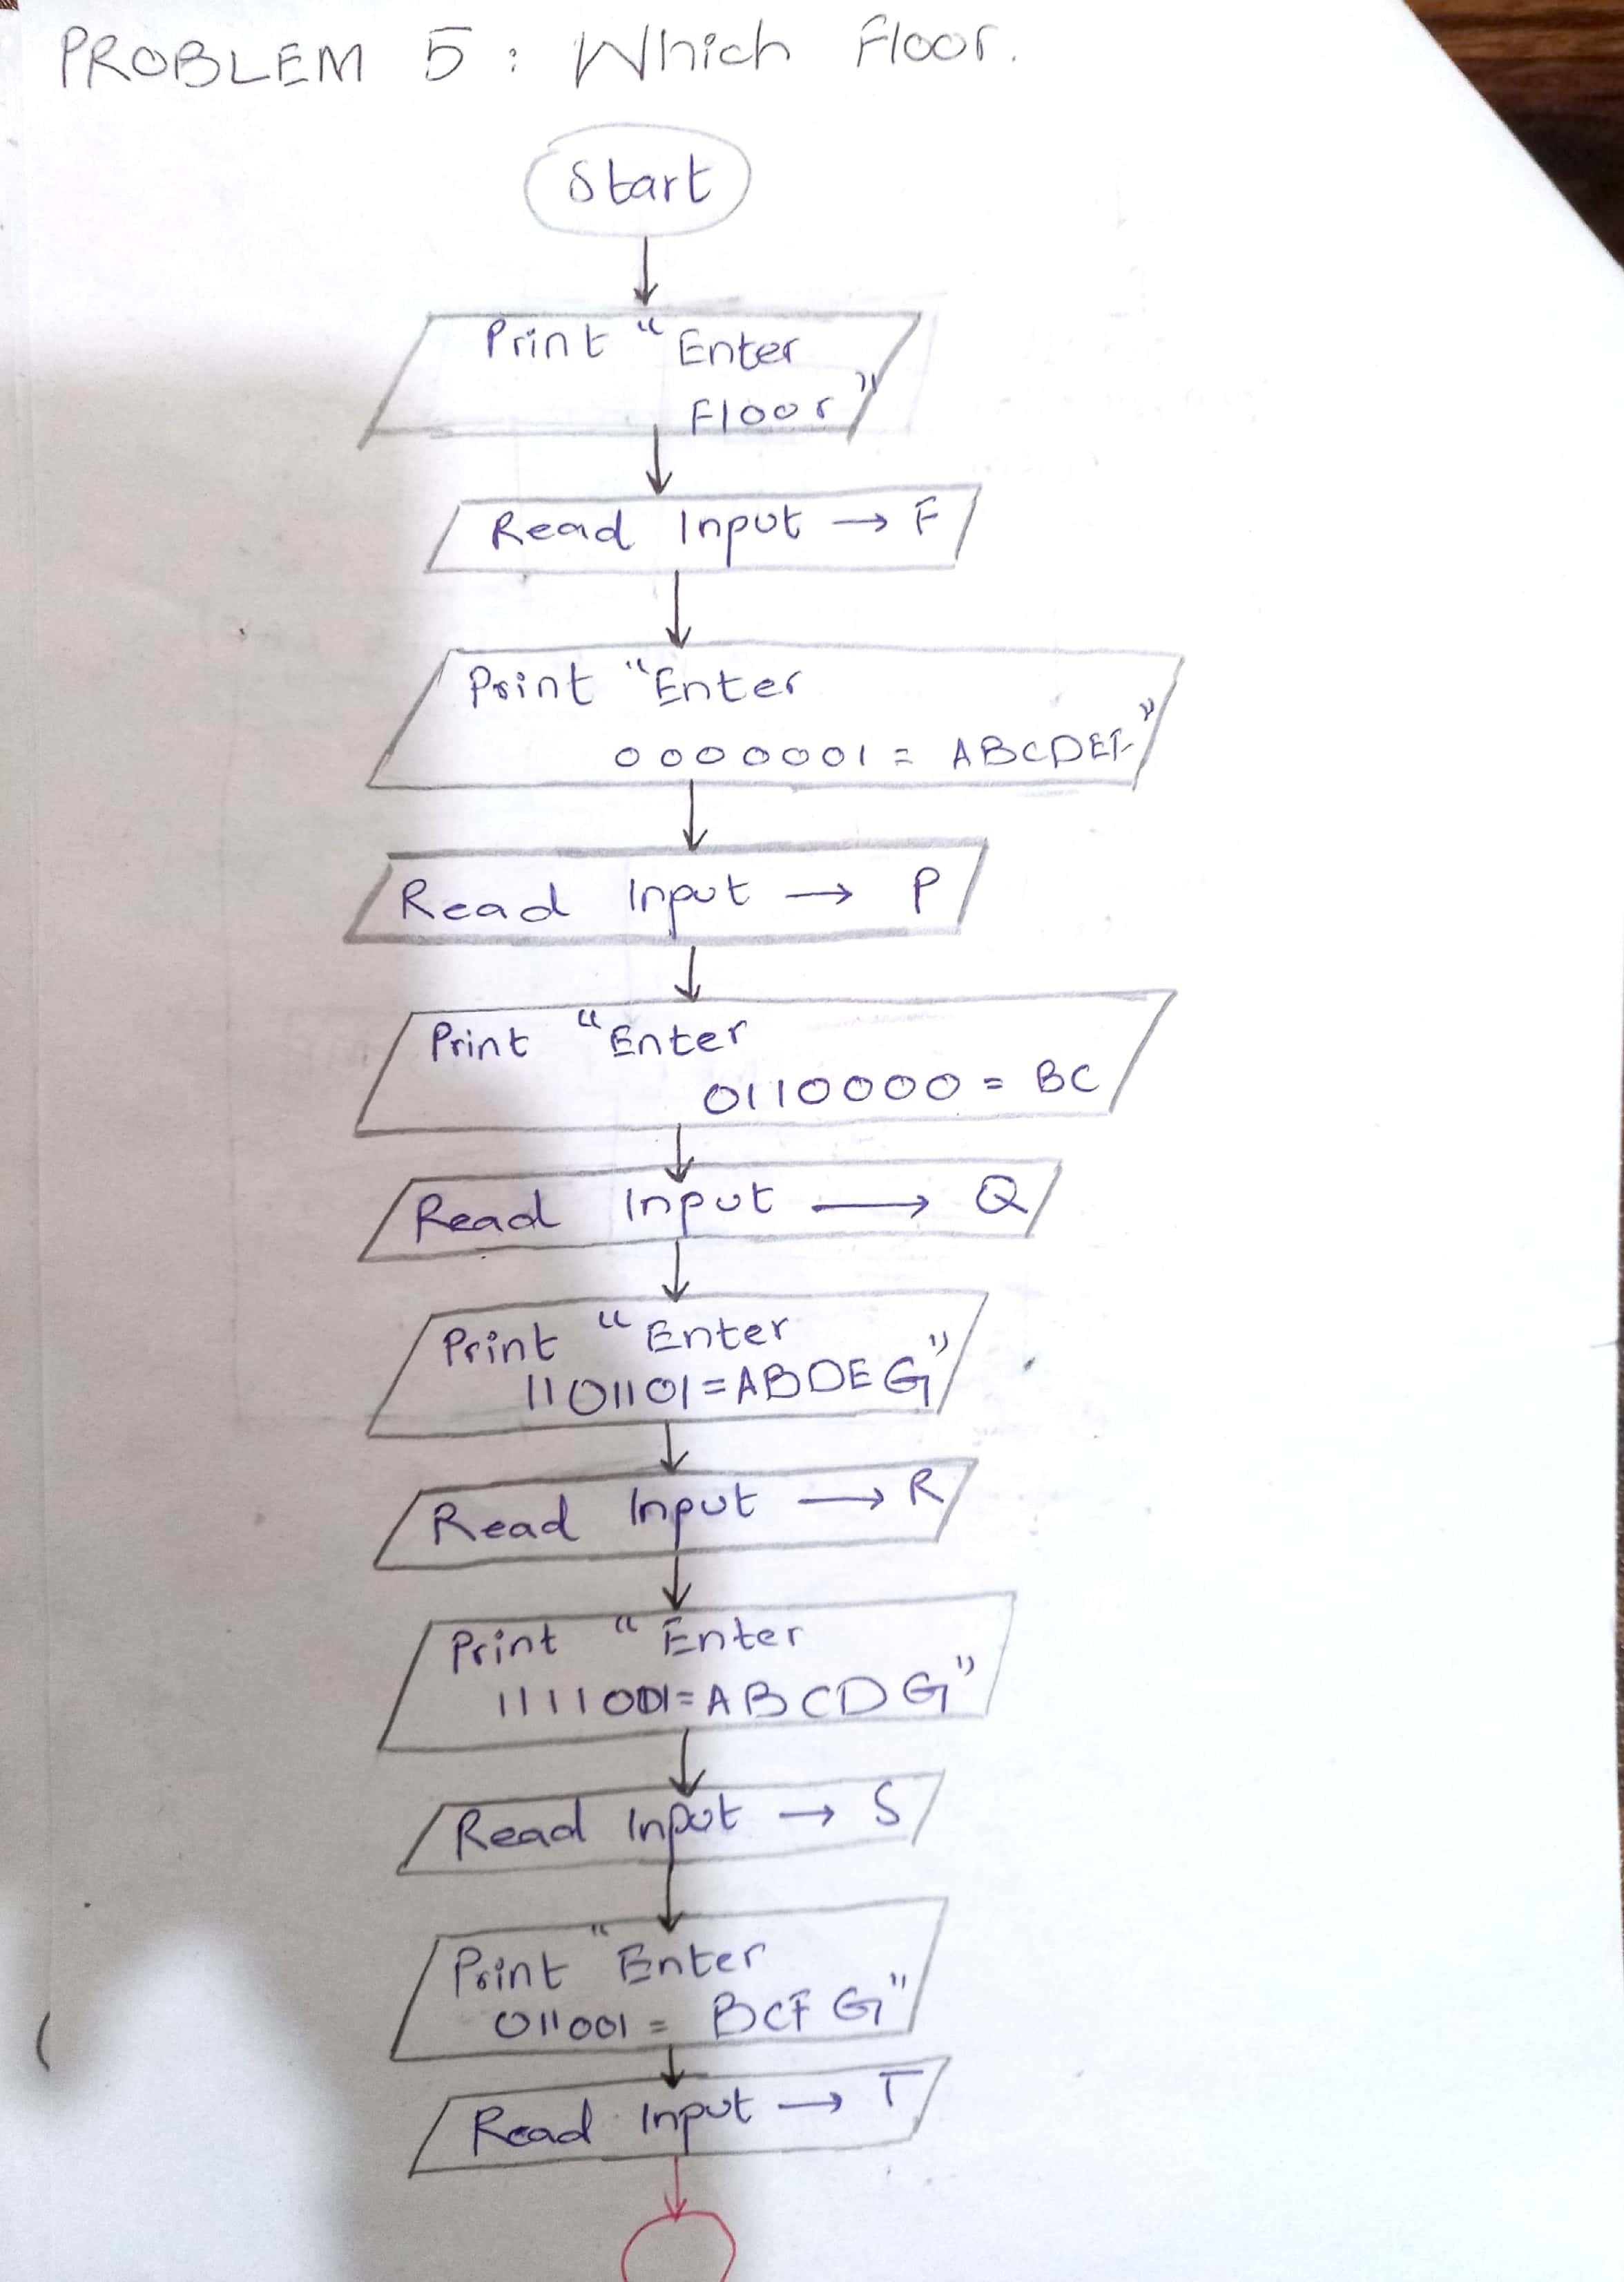 PROBLEM 5: Which Floor.
Start
Print "Enter
Floor"
Read Input → F
Print "Enter
0000001 = ABCDEF"
Read Input → P
Print "Enter
0110000 = BC
Read Input → Q
Print "Enter
1101101=ABDEG"
Read Input → R
Print "Enter
1111001=ABCDG"
Read Input → S
Print "Enter
011001 = BCFG"
Read Input → T